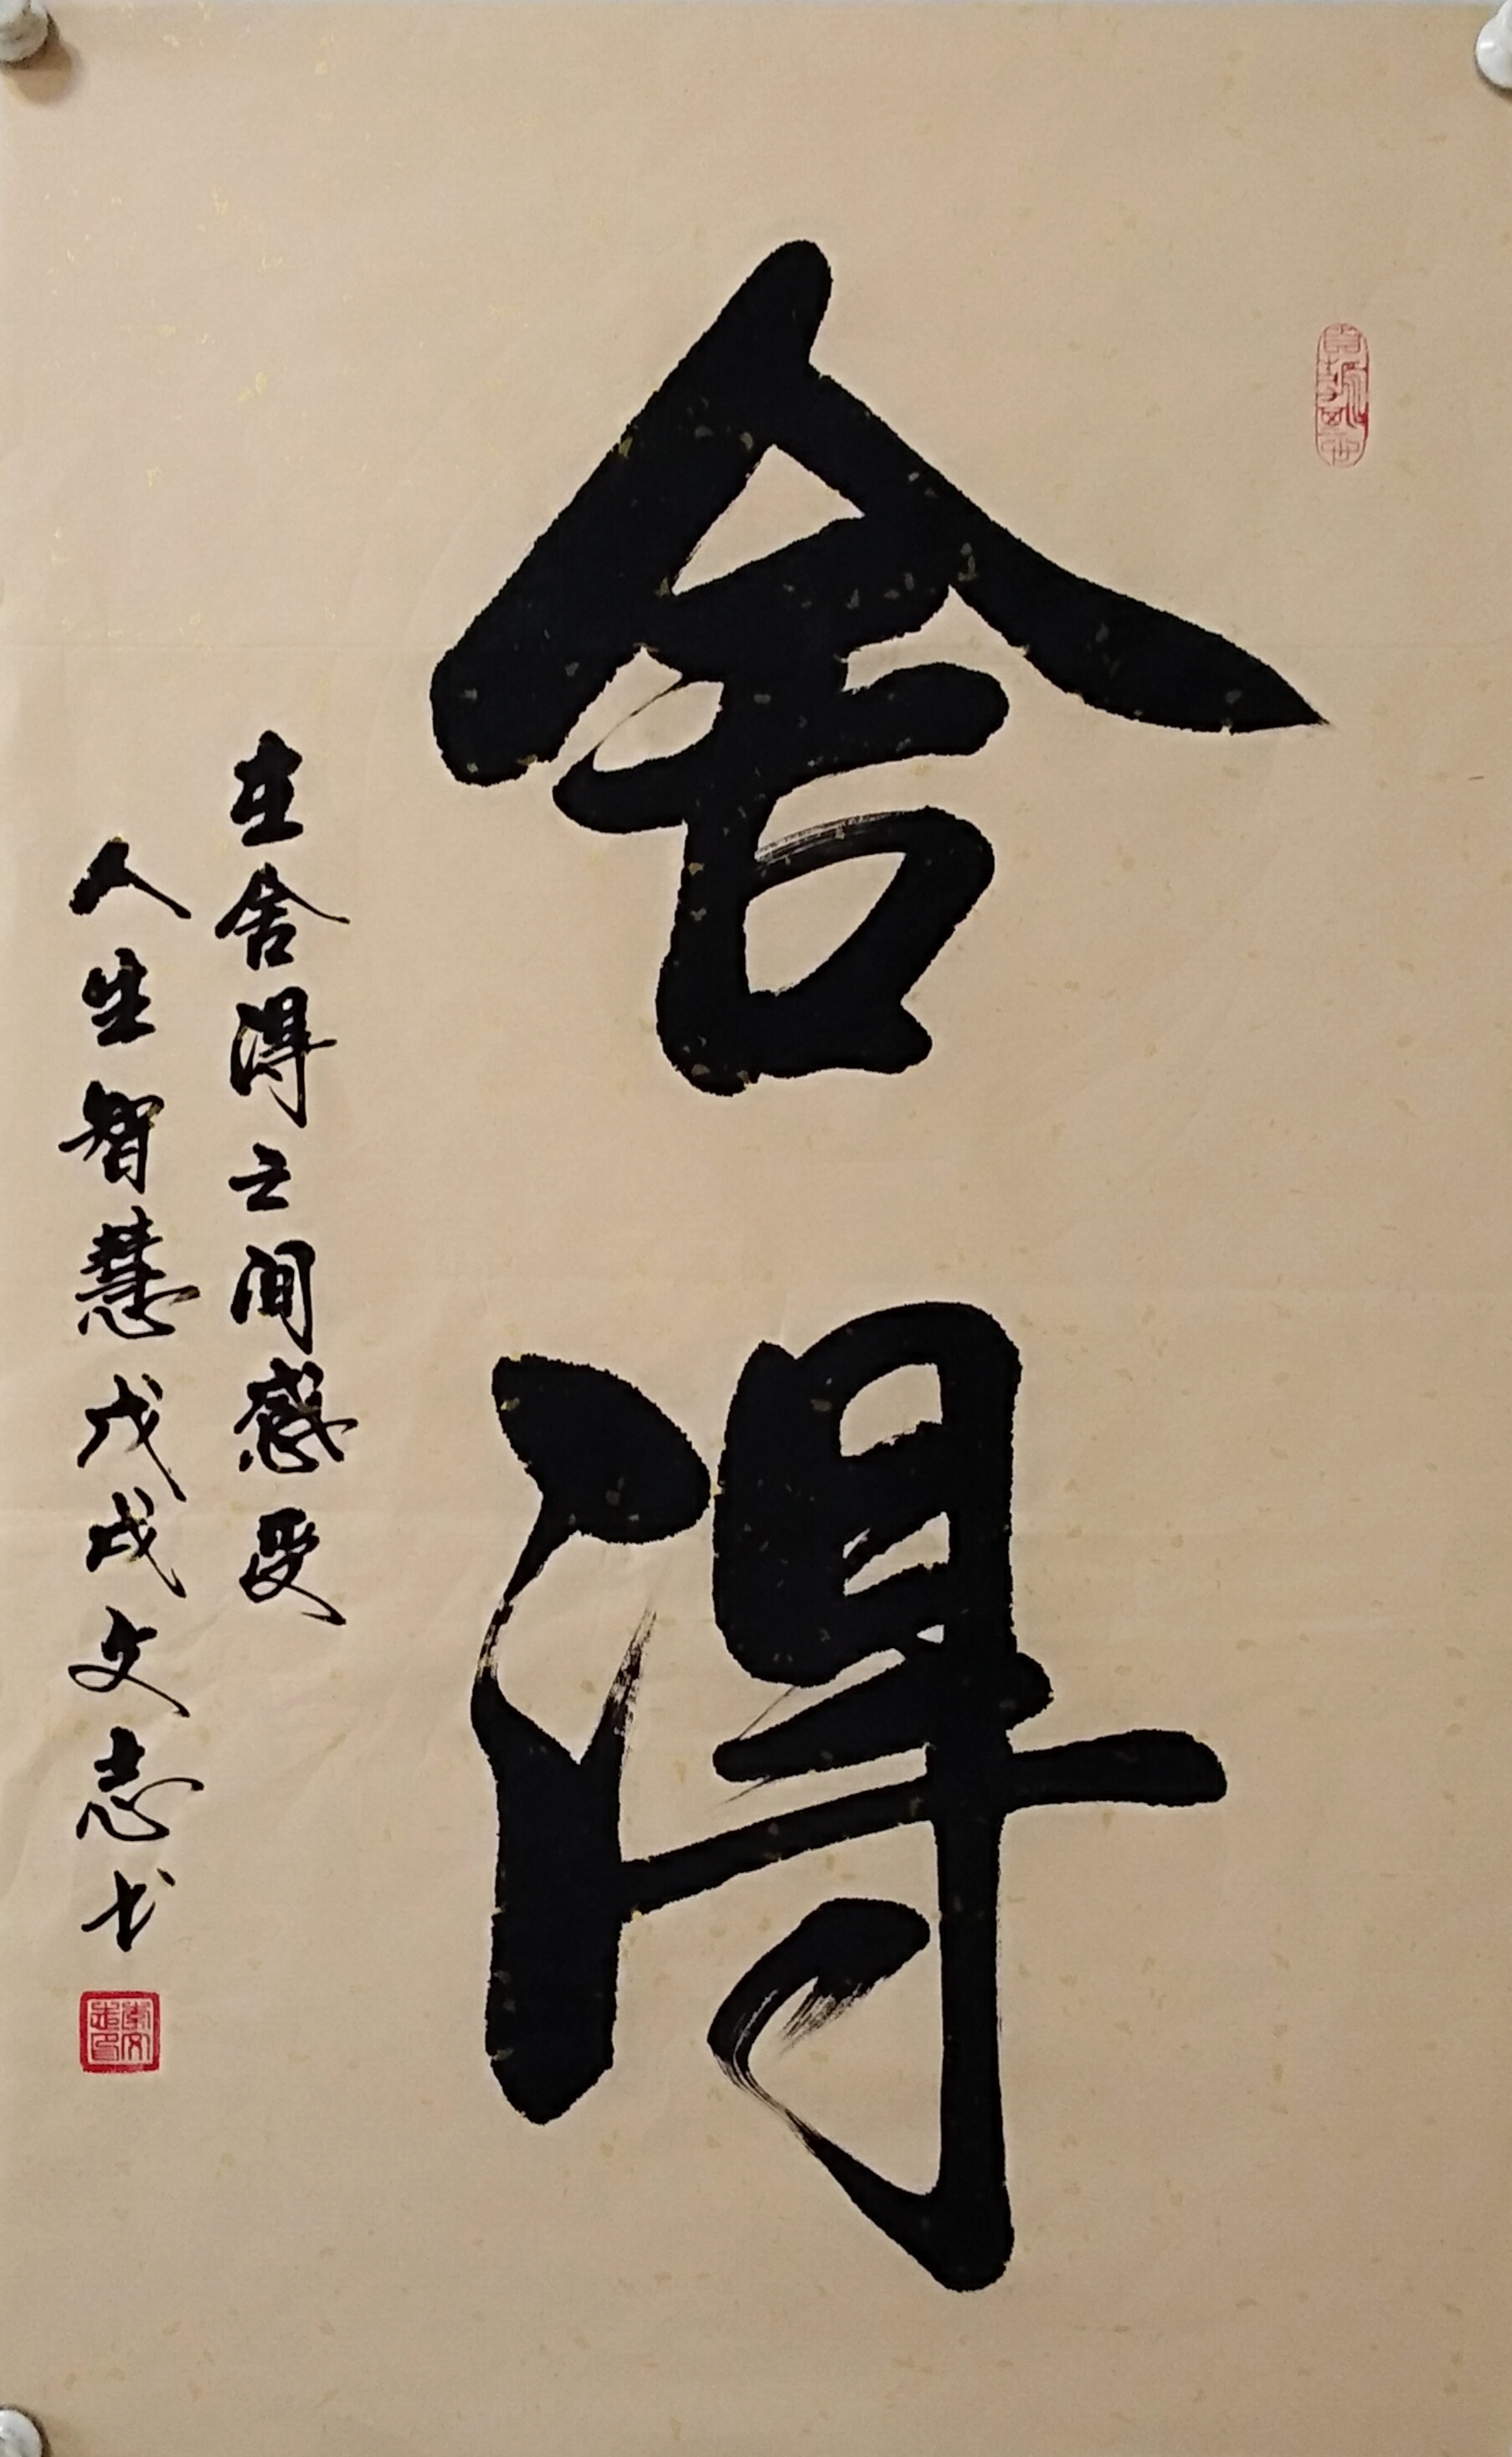 舍得
在舍得之间感受
人生智慧戊戌文志书